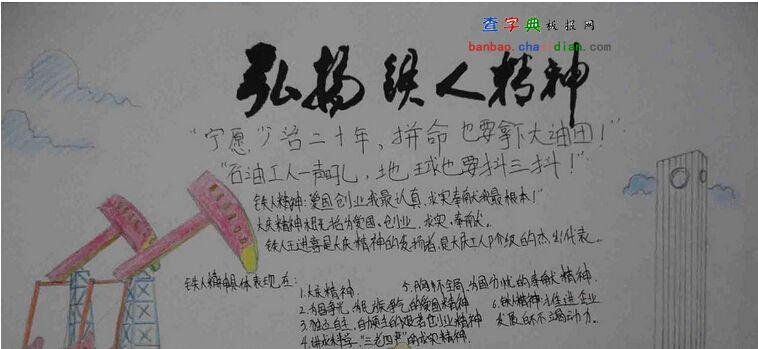 查字典板报网
banbao.chazidian.com
弘扬铁人精神
"宁愿少活二十年，拼命也要拿下大油田！"
"石油工人一声吼，地球也要抖三抖！"
铁人精神：爱国创业我最认真，求实奉献我最根本！"
大庆精神 爱国、创业、求实、奉献。
铁人王进喜是大庆精神的 是大庆工人阶级的杰出代表。
铁人精神具体表现在：
1.大庆精神
2.为国争光、为民族争气的爱国精神
3.独立自主、自力更生的艰苦创业精神
4.讲求科学、"三老四严"的求实精神.
5.胸怀全局、为国分忧的奉献精神.
6.铁人精神 企业
发展 动力.